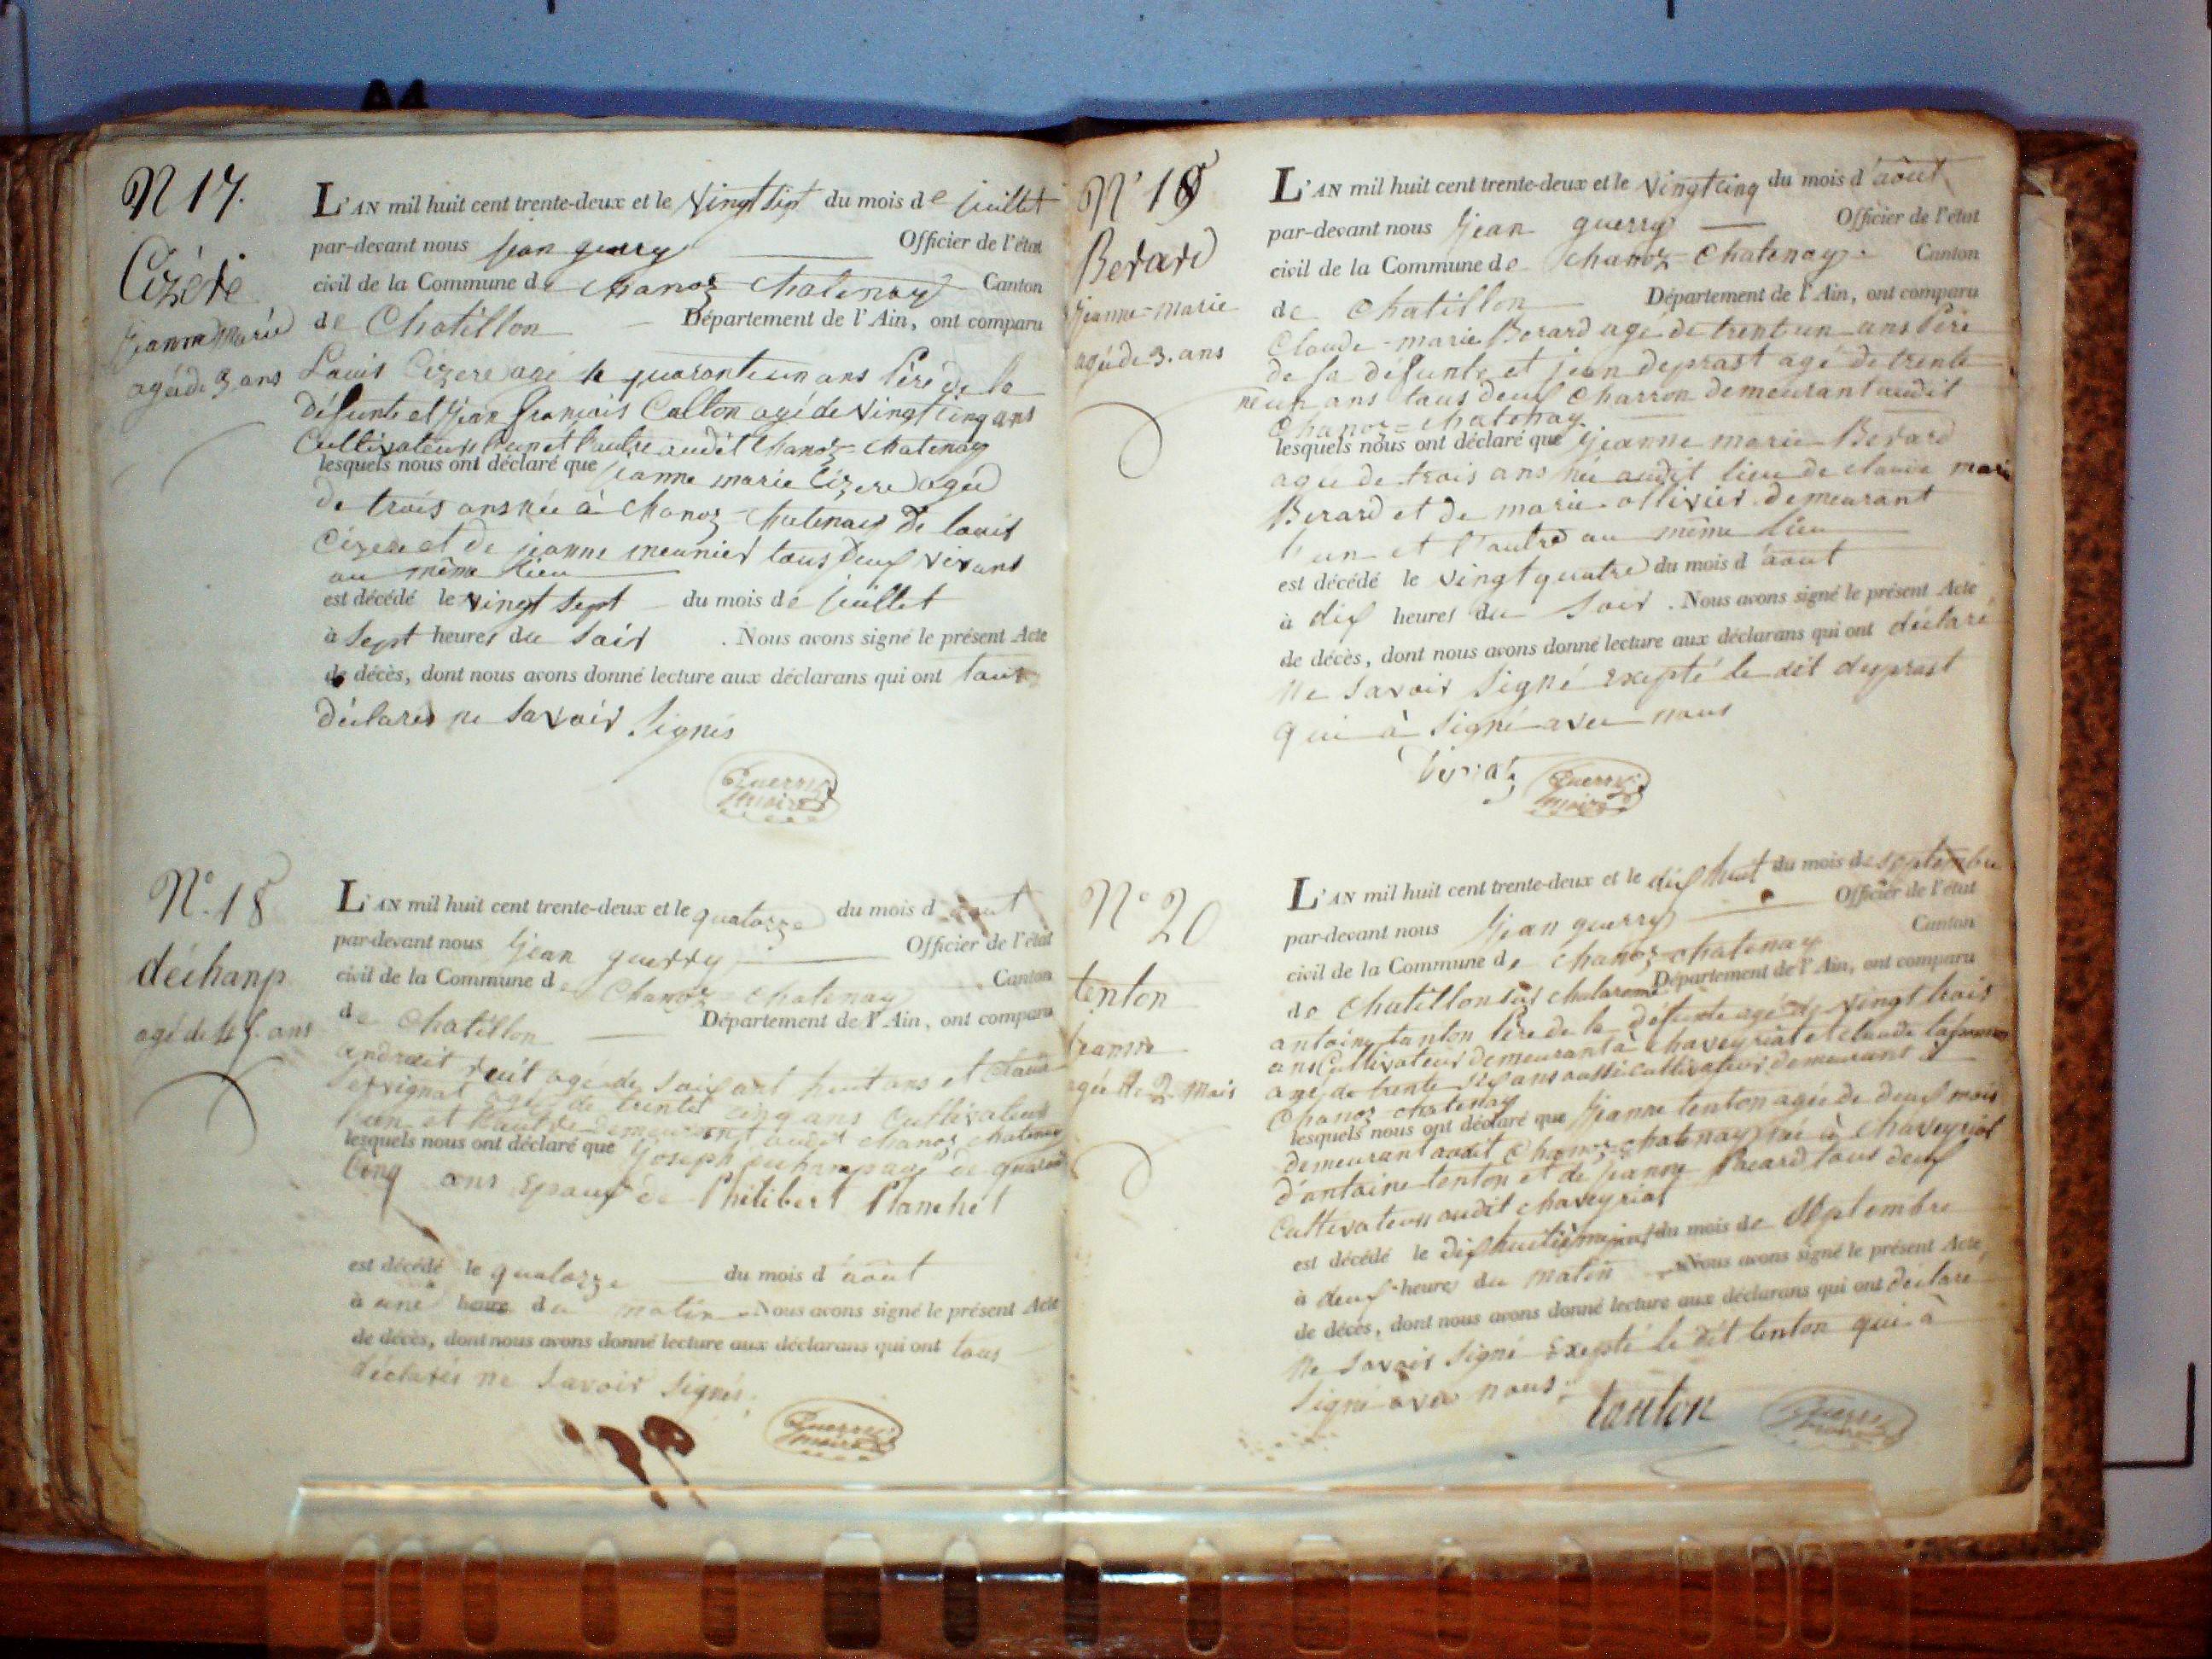 N 17.
Cizere
jeanne Marie
agée de 3 ans
L'AN mil huit cent trente-deux et le vingt sept du mois de juillet
par-devant nous jean guerry Officier de l'état
civil de la Commune de Chanoz Chatenay Canton
de Chatillon Département de l'Ain, ont comparu
Louis Cizere agé de quarante un ans père de la
défunte et jean françois Callon agé de vingt cinq ans
Cultivateurs l'un et l'autre audit Chanoz=Chatenay
lesquels nous ont déclaré que jeanne marie Cizere agée
de trois ans née à Chanoz Chatenay de louis
Cizere et de jeanne meunier tous deux vivant
au même lieu
est décédé le vingt sept du mois de juillet
à sept heures du soir . Nous avons signé le présent Acte
de décès, dont nous avons donné lecture aux déclarans qui ont tous
déclarés ne savoir signés
Guerry
maire
N°. 18
déchanp
agé de 45. ans
L'AN mil huit cent trente-deux et le quatorze du mois d'aout
par-devant nous jean guerry Officier de l'état
civil de la Commune de Chanoz=Chatenay Canton
de Chatillon Département de l'Ain, ont comparu
agé de soixant huit ans et
Servignat agé de trente cinq ans Cultivateurs
l'un et l'autre demeurant audit Chanoz Chatenay
lesquels nous ont déclaré que joseph dechamp agé de quarante
Cinq ans Epoux de Philibert Planchet
est décédé le quatorze du mois d'aout
à une heure du matin Nous avons signé le présent Acte
de décès, dont nous avons donné lecture aux déclarans qui ont tous
déclarés ne savoir signés.
Guerry
maire
N° 19
Berard
jeanne-marie
agée de 3. ans
L'AN mil huit cent trente-deux et le vingt cinq du mois d'aôut
par-devant nous jean guerry Officier de l'état
civil de la Commune de Chanoz-Chatenay Canton
de Chatillon Département de l'Ain, ont comparu
Claude-marie Berard agé de trent un ans Père
de la défunte et jean deprast agé de trente
neuf ans tous deux Charron demeurant audit
Chanoz=Chatenay
lesquels nous ont déclaré que jeanne marie Berard
agée de trois ans née audit lieu de claude marie
Berard et de marie ollivier demeurant
l'un et l'autre au même lieu
est décédé le vingt quatre du mois d'aout
à dix heures du soir . Nous avons signé le présent Acte
de décès, dont nous avons donné lecture aux déclarans qui ont déclaré
ne savoir signé excepté le dit deprast
qui à signé avec nous
Guerry
maire
N° 20
tenton
jeanne
agée de 2 mois
L'AN mil huit cent trente-deux et le dix huit du mois de septembre
par-devant nous jean guerry Officier de l'état
civil de la Commune de Chanoz-chatenay Canton
de Chatillon sur chalaronne Département de l'Ain, ont comparu
antoine tanton Père de la défunte agé de vingt trois
ans Cultivateur demeurant à chaveyriat et claude
agé de trente ans aussi cultivateur demeurant
Chanoz chatenay
lesquels nous ont déclaré que jeanne tenton agée de deux mois
demeurant audit Chanoz-chatenay née à Chaveyriat
d'antoine tenton et de jeanne Pacard tous deux
Cultivateurs audit chaveyriat
est décédé le dix huitième jour du mois de septembre
à deux heures du matin Nous avons signé le présent Acte
de décès, dont nous avons donné lecture aux déclarans qui ont déclaré
ne savoir signé Excepté le dit tenton qui à
signé avec nous.
tanton
Guerry
maire